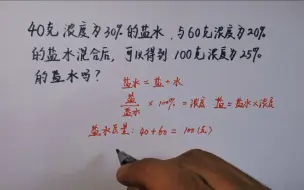 40克浓度为30%的盐水,与60克浓度为20%
的盐水混合后,可以得到100克浓度为25%
的盐水吗?
盐水=盐+水
盐/盐水×100%=浓度 盐=盐水×浓度
盐水质量:40+60=100(克)